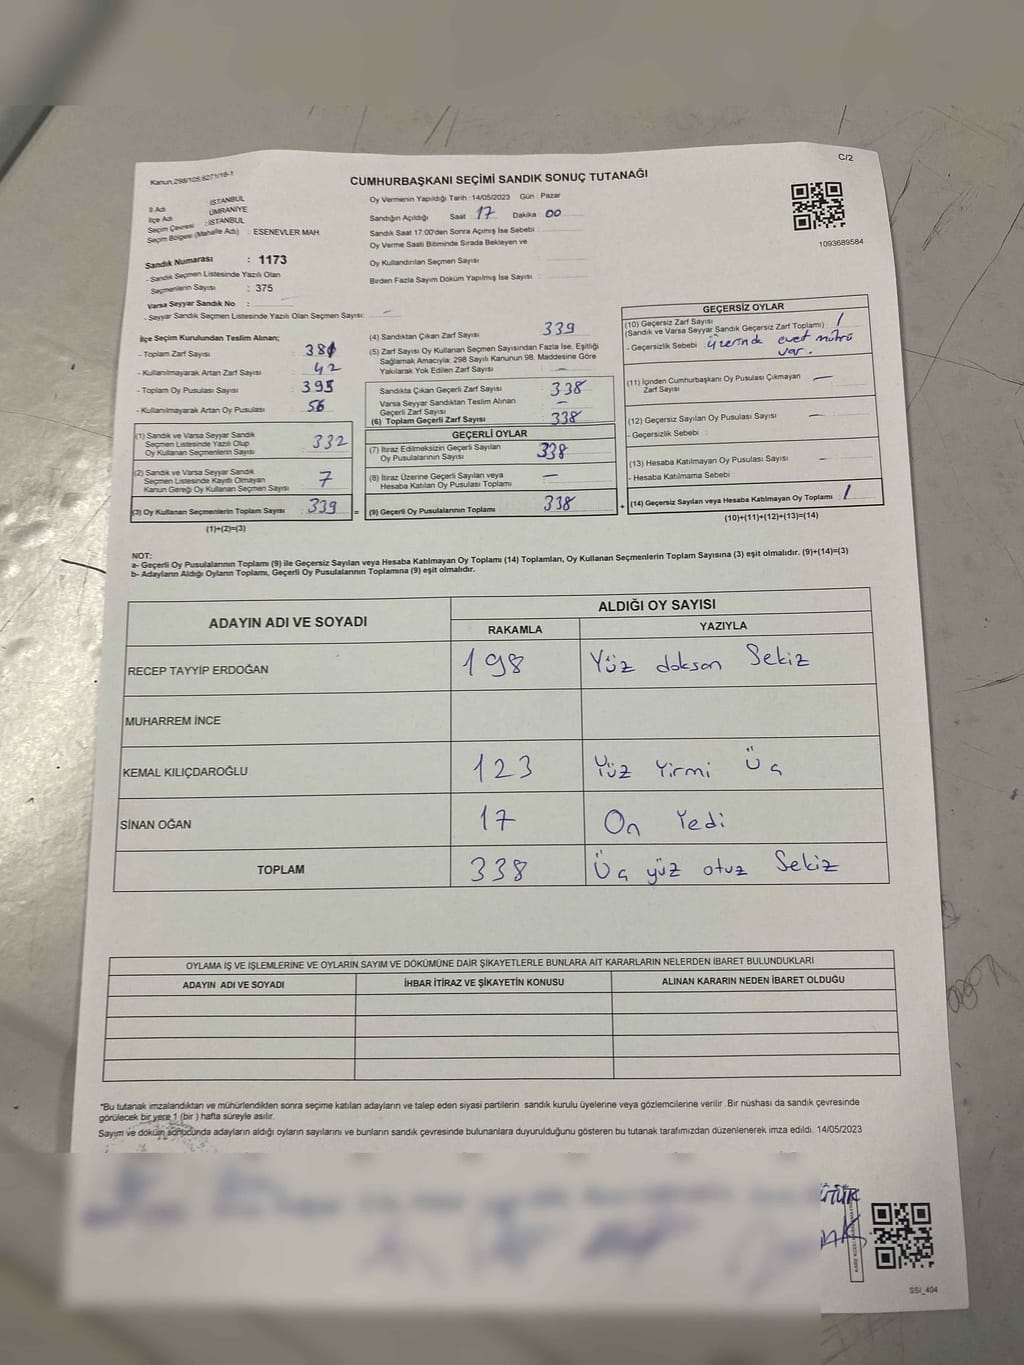 C/2
Kanun:298/105,6271/18-1
CUMHURBAŞKANI SEÇİMİ SANDIK SONUÇ TUTANAĞI
İl Adı : İSTANBUL
İlçe Adı : ÜMRANİYE
Seçim Çevresi : İSTANBUL
Seçim Bölgesi (Mahalle Adı) : ESENEVLER MAH.
Sandık Numarası : 1173
- Sandık Seçmen Listesinde Yazılı Olan
Seçmenlerin Sayısı : 375
Varsa Seyyar Sandık No :
- Seyyar Sandık Seçmen Listesinde Yazılı Olan Seçmen Sayısı: –
Oy Vermenin Yapıldığı Tarih :14/05/2023 Gün : Pazar
Sandığın Açıldığı Saat 17 Dakika 00
Sandık Saat 17:00'den Sonra Açımış İse Sebebi :
Oy Verme Saati Bitiminde Sırada Bekleyen ve
Oy Kullandırılan Seçmen Sayısı :
Birden Fazla Sayım Döküm Yapılmış İse Sayısı :
1093689584
İlçe Seçim Kurulundan Teslim Alınan;
- Toplam Zarf Sayısı : 380
- Kullanılmayarak Artan Zarf Sayısı : 42
- Toplam Oy Pusulası Sayısı : 395
- Kullanılmayarak Artan Oy Pusulası : 56
(1) Sandık ve Varsa Seyyar Sandık
Seçmen Listesinde Yazılı Olup
Oy Kullanan Seçmenlerin Sayısı : 332
(2) Sandık ve Varsa Seyyar Sandık
Seçmen Listesinde Kayıtlı Olmayan
Kanun Gereği Oy Kullanan Seçmen Sayısı : 7
(3) Oy Kullanan Seçmenlerin Toplam Sayısı : 339
(1)+(2)=(3)
(4) Sandıktan Çıkan Zarf Sayısı : 339
(5) Zarf Sayısı Oy Kullanan Seçmen Sayısından Fazla İse, Eşitliği
Sağlamak Amacıyla; 298 Sayılı Kanunun 98. Maddesine Göre
Yakılarak Yok Edilen Zarf Sayısı : –
Sandıkta Çıkan Geçerli Zarf Sayısı : 338
Varsa Seyyar Sandıktan Teslim Alınan
Geçerli Zarf Sayısı : –
(6) Toplam Geçerli Zarf Sayısı : 338
GEÇERLİ OYLAR
(7) İtiraz Edilmeksizin Geçerli Sayılan
Oy Pusulalarının Sayısı : 338
(8) İtiraz Üzerine Geçerli Sayılan veya
Hesaba Katılan Oy Pusulası Toplamı : –
= (9) Geçerli Oy Pusulalarının Toplamı : 338
GEÇERSİZ OYLAR
(10) Geçersiz Zarf Sayısı
(Sandık ve Varsa Seyyar Sandık Geçersiz Zarf Toplamı) : 1
- Geçersizlik Sebebi : üzerinde evet mührü
var.
(11) İçinden Cumhurbaşkanı Oy Pusulası Çıkmayan
Zarf Sayısı : –
(12) Geçersiz Sayılan Oy Pusulası Sayısı : –
- Geçersizlik Sebebi :
(13) Hesaba Katılmayan Oy Pusulası Sayısı : –
- Hesaba Katılmama Sebebi :
+ (14) Geçersiz Sayılan veya Hesaba Katılmayan Oy Toplamı : 1
(10)+(11)+(12)+(13)=(14)
NOT:
a- Geçerli Oy Pusulalarının Toplamı (9) ile Geçersiz Sayılan veya Hesaba Katılmayan Oy Toplamı (14) Toplamları, Oy Kullanan Seçmenlerin Toplam Sayısına (3) eşit olmalıdır. (9)+(14)=(3)
b- Adayların Aldığı Oyların Toplamı, Geçerli Oy Pusulalarının Toplamına (9) eşit olmalıdır.
ADAYIN ADI VE SOYADI ALDIĞI OY SAYISI
RAKAMLA YAZIYLA
RECEP TAYYİP ERDOĞAN 198 Yüz doksan Sekiz
MUHARREM İNCE
KEMAL KILIÇDAROĞLU 123 Yüz Yirmi Üç
SİNAN OĞAN 17 On Yedi
TOPLAM 338 Üç yüz otuz Sekiz
OYLAMA İŞ VE İŞLEMLERİNE VE OYLARIN SAYIM VE DÖKÜMÜNE DAİR ŞİKAYETLERLE BUNLARA AİT KARARLARIN NELERDEN İBARET BULUNDUKLARI
ADAYIN ADI VE SOYADI İHBAR İTİRAZ VE ŞİKAYETİN KONUSU ALINAN KARARIN NEDEN İBARET OLDUĞU
*Bu tutanak imzalandıktan ve mühürlendikten sonra seçime katılan adayların ve talep eden siyasi partilerin sandık kurulu üyelerine veya gözlemcilerine verilir .Bir nüshası da sandık çevresinde
görülecek bir yere 1 (bir ) hafta süreyle asılır.
Sayım ve döküm sonucunda adayların aldığı oyların sayılarını ve bunların sandık çevresinde bulunanlara duyurulduğunu gösteren bu tutanak tarafımızdan düzenlenerek imza edildi. 14/05/2023
SSI_404